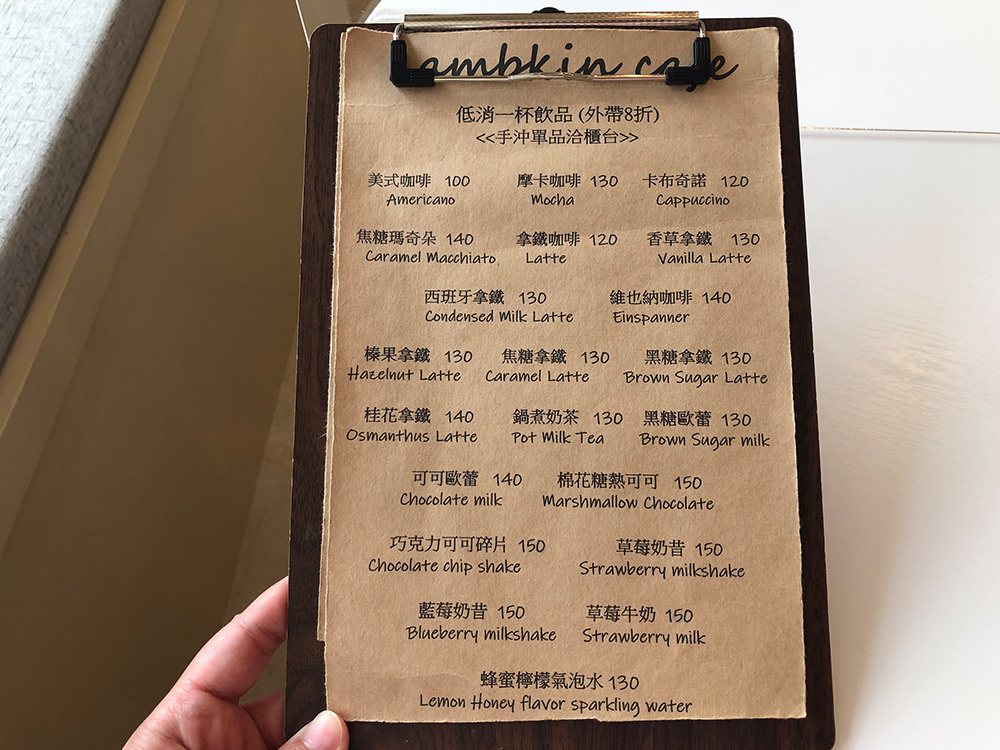 ambkin cafe
低消一杯飲品 (外帶8折)
<<手沖單品洽櫃台>>
美式咖啡 100 摩卡咖啡 130 卡布奇諾 120
Americano Mocha Cappuccino
焦糖瑪奇朵 140 拿鐵咖啡 120 香草拿鐵 130
Caramel Macchiato Latte Vanilla Latte
西班牙拿鐵 130 維也納咖啡 140
Condensed Milk Latte Einspanner
榛果拿鐵 130 焦糖拿鐵 130 黑糖拿鐵 130
Hazelnut Latte Caramel Latte Brown Sugar Latte
桂花拿鐵 140 鍋煮奶茶 130 黑糖歐蕾 130
Osmanthus Latte Pot Milk Tea Brown Sugar milk
可可歐蕾 140 棉花糖熱可可 150
Chocolate milk Marshmallow Chocolate
巧克力可可碎片 150 草莓奶昔 150
Chocolate chip shake Strawberry milkshake
藍莓奶昔 150 草莓牛奶 150
Blueberry milkshake Strawberry milk
蜂蜜檸檬氣泡水 130
Lemon Honey flavor sparkling water